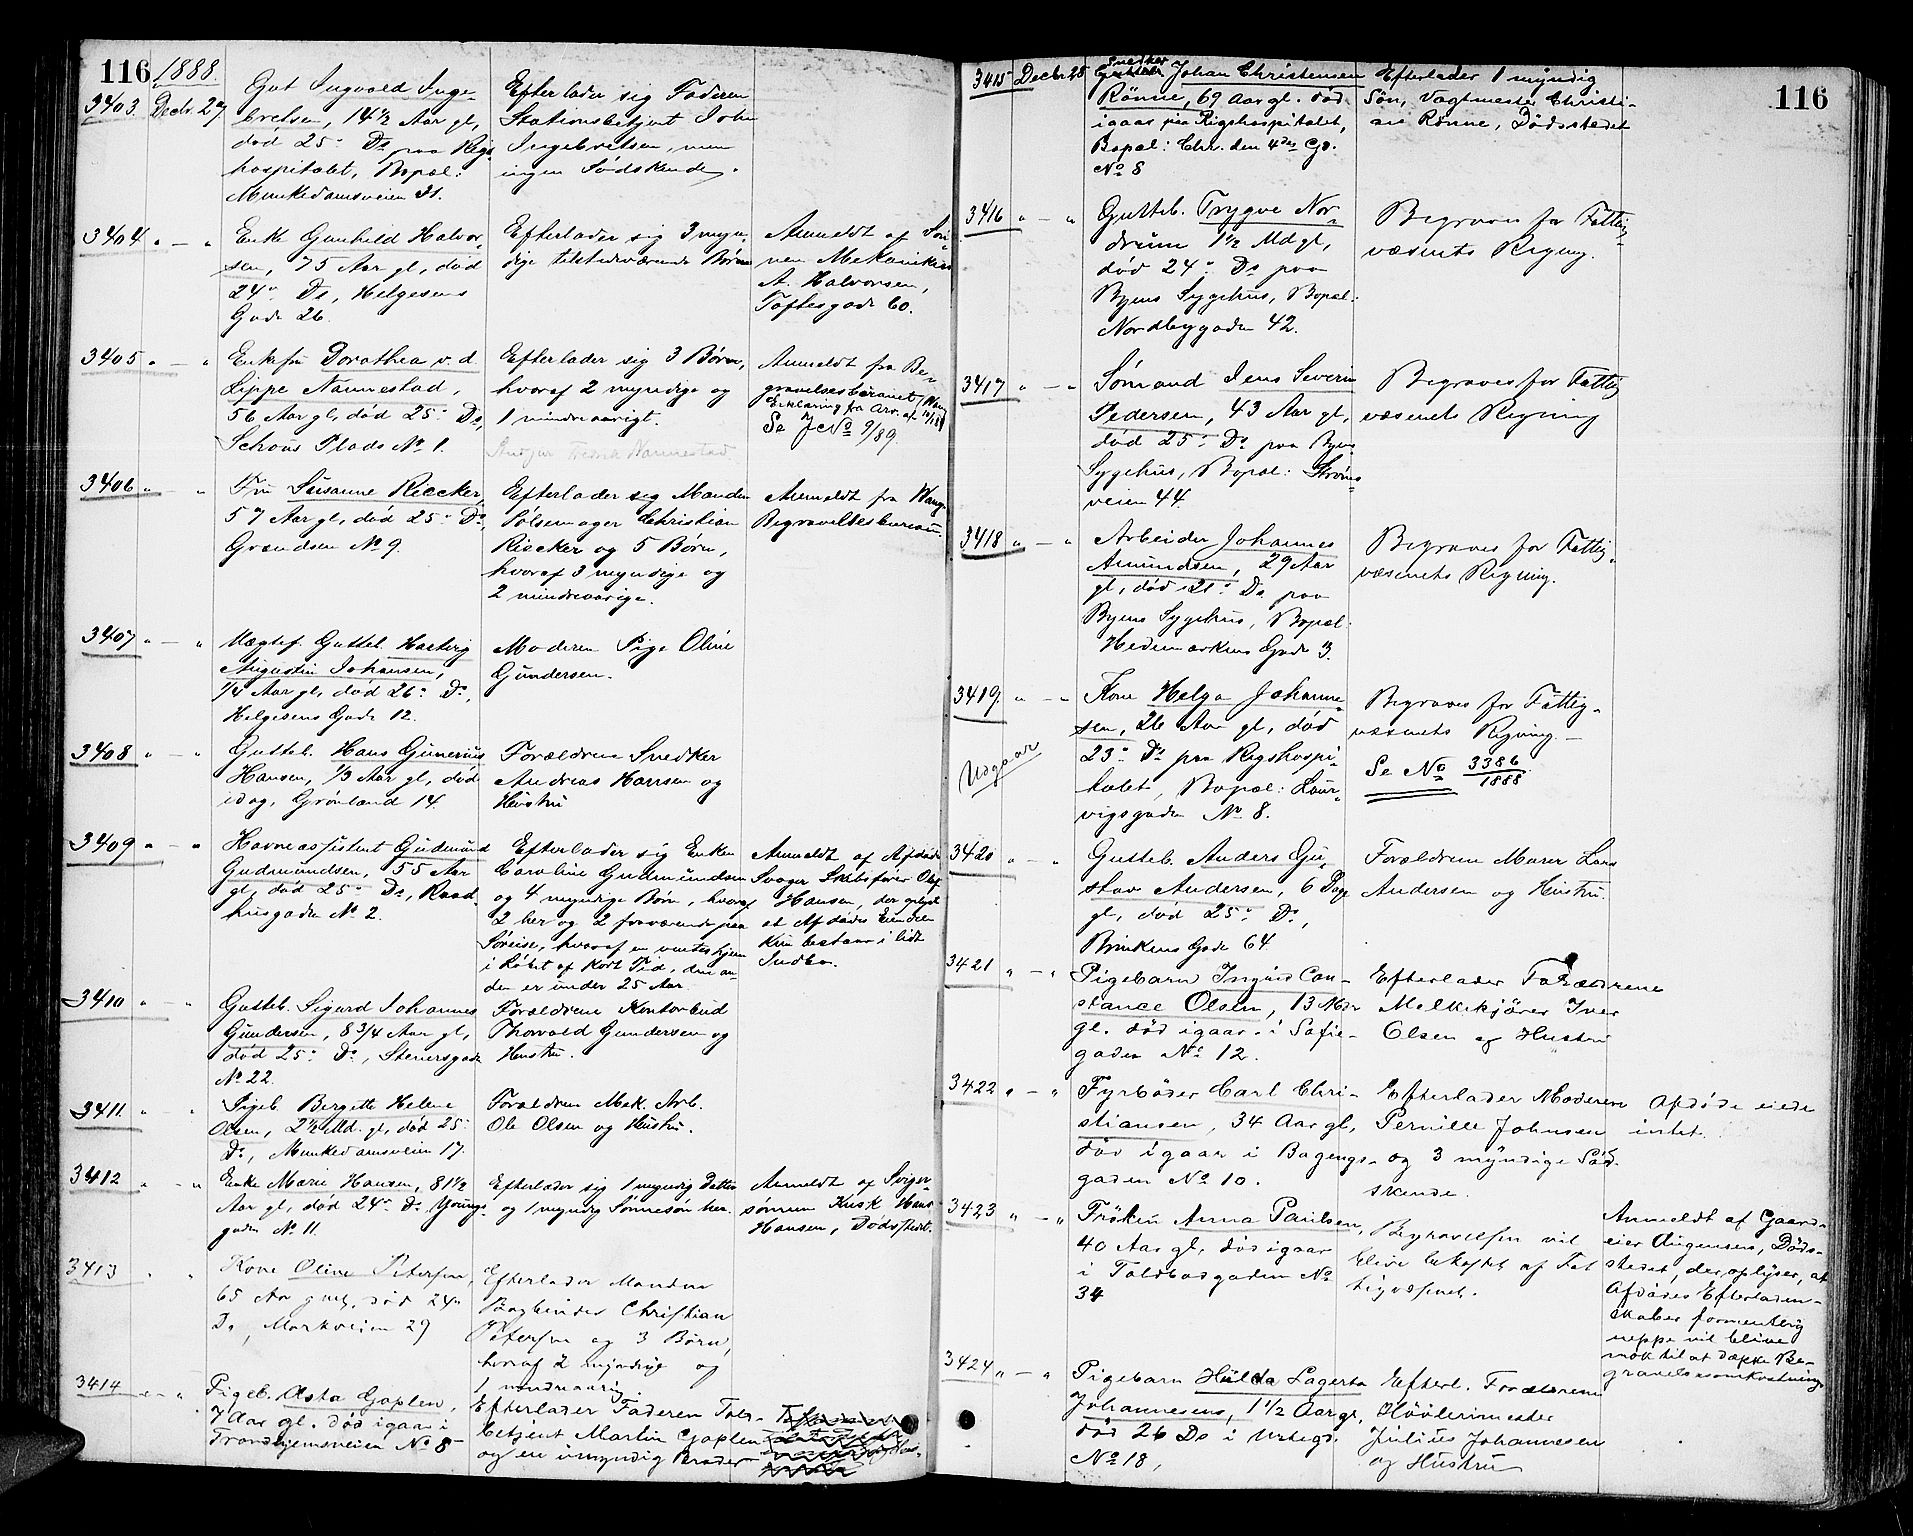 116 1888.
3403. Decbr. 27 Gut Ingvald Inge-
bretsen, 14½ Aar gl,
død 25de Ds paa Rigs
hospitalet, Bopæl:
Munkedamsveien 21.
Efterlader sig Faderen
Stationsbetjent John
Ingebretsen, men
ingen Sødskende.
3404 " — " Enke Gunhild Halvor-
sen, 75 Aar gl, død
24de Ds, Helgesens
Gade 26.
Efterlader sig 3 myn-
dige tilstedeværende Børn
Anmeldt af Søn-
nen Mekaniker
A. Halvorsen,
Toftesgade 60.
3405 " — " Enkefru Dorothea v. d.
Lippe Nannestad,
56 Aar gl, død 25de Ds,
Schous Plads No 1.
Efterlader sig 3 Børn,
hvoraf 2 myndige og
1 mindreaarigt.
Fredrik Nannestad.
Anmeldt fra Be-
gravelsesbureauet
Erklæring fra Arv. af
Se JcNo 9/89.
3406 " — " Fru Susanne Riecker,
57 Aar gl, død 25de Ds,
Grændsen No 9.
Efterlader sig Manden
Pølsemager Christian
Riecker og 5 Børn,
hvoraf 3 myndige og
2 mindreaarige.
Anmeldt fra Wangs
Begravelsesbureau.
3407 " — " Uægtef. Gutteb. Hartvig
Augustin Johansen,
1/4 Aar gl, død 26de Ds,
Helgesens Gade 12.
Moderen Pige Oline
Gundersen.
3408 " — " Gutteb. Hans Gunerius
Hansen, 1/3 Aar gl, død
idag, Grønland 14.
Forældrene Snedker
Andreas Hansen og
Hustru
3409 " — " Havneassistent Gudmund
Gudmundsen, 55 Aar
gl, død 25de Ds, Raad-
husgaden No 2.
Efterlader sig Enken
Caroline Gudmundsen
og 4 myndige Børn, hvoraf
2 her og 2 fraværende paa
Søreise, hvoraf en ventes hjem
i Løbet af kort Tid, den an-
den er under 25 Aar.
Anmeldt af Afdødes
Svoger Skibsfører Olaf
Hansen, der oplyste
at Afdødes Eiendom
kun bestaar i lidt
Indbo.
3410 " — " Gutteb. Sigurd Johannes
Gundersen, 8 3/4 Aar gl,
død 25de Ds, Stenersgade
No 22.
Forældrene Kontorbud
Thorvald Gundersen og
Hustru.
3411. " — " Pigeb. Bergitte Helene
Olsen, 2½ Md. gl, død 25de
Ds, Munkedamsveien 17.
Forældrene Mek. Arb.
Ole Olsen og Hustru.
3412 " — " Enke Marie Hansen, 81½
Aar gl, død 24de Ds Youngs-
gade No 11.
Efterlader sig 1 myndig Datter
og 1 myndig Sønnesøn her.
Anmeldt af Sviger-
sønnen Kusk Hans
Hansen, Dødsstedet.
3413 " " Kone Oline Petersen,
65 Aar gml, død 24de
Ds, Markveien 29
Efterlader Manden
Bogbinder Christian
Petersen og 3 Børn,
hvoraf 2 myndige og
1 mindreaarig
3414 " — " Pigeb. Asta Gaplen,
7 Aar gl. død igaar i
Trondhjemsveien No 8
Efterlader Faderen Told-
betjent Martin Gaplen
og en umyndig Broder
3415 Decbr 28 Snedker Johan Christensen
Rönne, 69 Aar gl. död
igaar paa Rigshospitalet,
Bopæl: Chr. den 4des Gd.
No 8
Efterlader 1 myndig
Søn, Vagtmester Christi-
an Rönne, Dödsstedet
116
3416 " — " Gutteb. Trygve Nor-
drum 1½ Md gl,
død 24de Ds paa
Byens Sygehus, Bopæl:
Nordbygaden 42.
Begraves for Fattig-
væsenets Regning.
3417 " — " Sømand Jens Severin
Pedersen, 43 Aar gl,
død 25de Ds paa Byens
Sygehus, Bopæl: Strøms-
veien 44.
Begraves for Fattig
væsenets Regning
3418 " — " Arbeider Johannes
Amundsen, 29 Aar
gl, død 21de Ds paa
Byens Sygehus, Bopæl:
Hedemarkens Gade 3.
Begraves for Fattig-
væsenets Regning.
3419. " — " Kone Helga Johanne-
sen, 26 Aar gl, død
23de Ds paa Rigshospi-
talet, Bopæl: Laur-
vigsgaden No 8.
Udgaar
Begraves for Fattig-
væsenets Regning. —
Se No 3386/1888
3420 " — " Gutteb. Anders Gu-
stav Andersen, 6 Dage
gl, død 25de Ds,
Brinkens Gade 64
Forældrene Murer Lars
Andersen og Hustru.
3421 " — " Pigebarn Ingrid Con-
stance Olsen, 13 Mdr
gl. död igaar i Sofie-
gaden No 12.
Efterlader Forældrene
Melkekjører Iver
Olsen og Hustru
3422 " — " Fyrböder Carl Chri-
stiansen, 34 Aar gl,
död igaar i Bagengs-
gaden No 10.
Efterlader Moderen
Pernille Johnsen
og 3 myndige Söd-
skende.
Afdöde eiede
intet.
3423 " — " Fröken Anna Paulsen,
40 Aar gl, död igaar
i Toldbodgaden No
34
Begravelsen vil
blive bekostet af Fat
tigvæsenet.
Anmeldt af Gaard-
eier Augensen, Döds-
stedet, der oplyser, at
Afdödes Efterladen-
skaber formentlig
neppe vil blive
nok til at dække Be-
gravelsesomkostning
3424 " — " Pigebarn Hilda Lagerta
Johannesens, 1½ Aar gl,
död 26 Ds i Urtegd.
No 18,
Efterl. Forældrene
Høvlerimester
Julius Johannesen
og Hustru